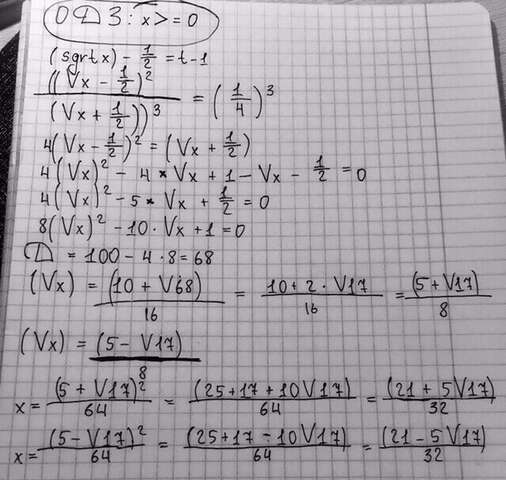 ОДЗ: x>=0
(sgrtx) - 1/2 = t-1
((Vx - 1/2)^2 / (Vx + 1/2))^3 = (1/4)^3
4(Vx - 1/2)^2 = (Vx + 1/2)
4(Vx)^2 - 4 * Vx + 1 - Vx - 1/2 = 0
4(Vx)^2 - 5 * Vx + 1/2 = 0
8(Vx)^2 - 10 · Vx + 1 = 0
D = 100 - 4 · 8 = 68
(Vx) = (10 + V68)/16 = 10 + 2 · V17/16 = (5 + V17)/8
(Vx) = (5 - V17)/8
x = (5 + V17)^2/64 = (25 + 17 + 10V17)/64 = (21 + 5V17)/32
x = (5 - V17)^2/64 = (25 + 17 - 10V17)/64 = (21 - 5V17)/32